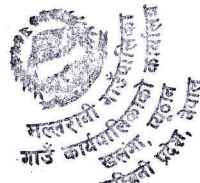 मल्लरानी गाउँपालिका
गाउँ कार्यपालिकाको कार्यालय
खलंगा, प्यूठान
लुम्बिनी प्रदेश, नेपाल